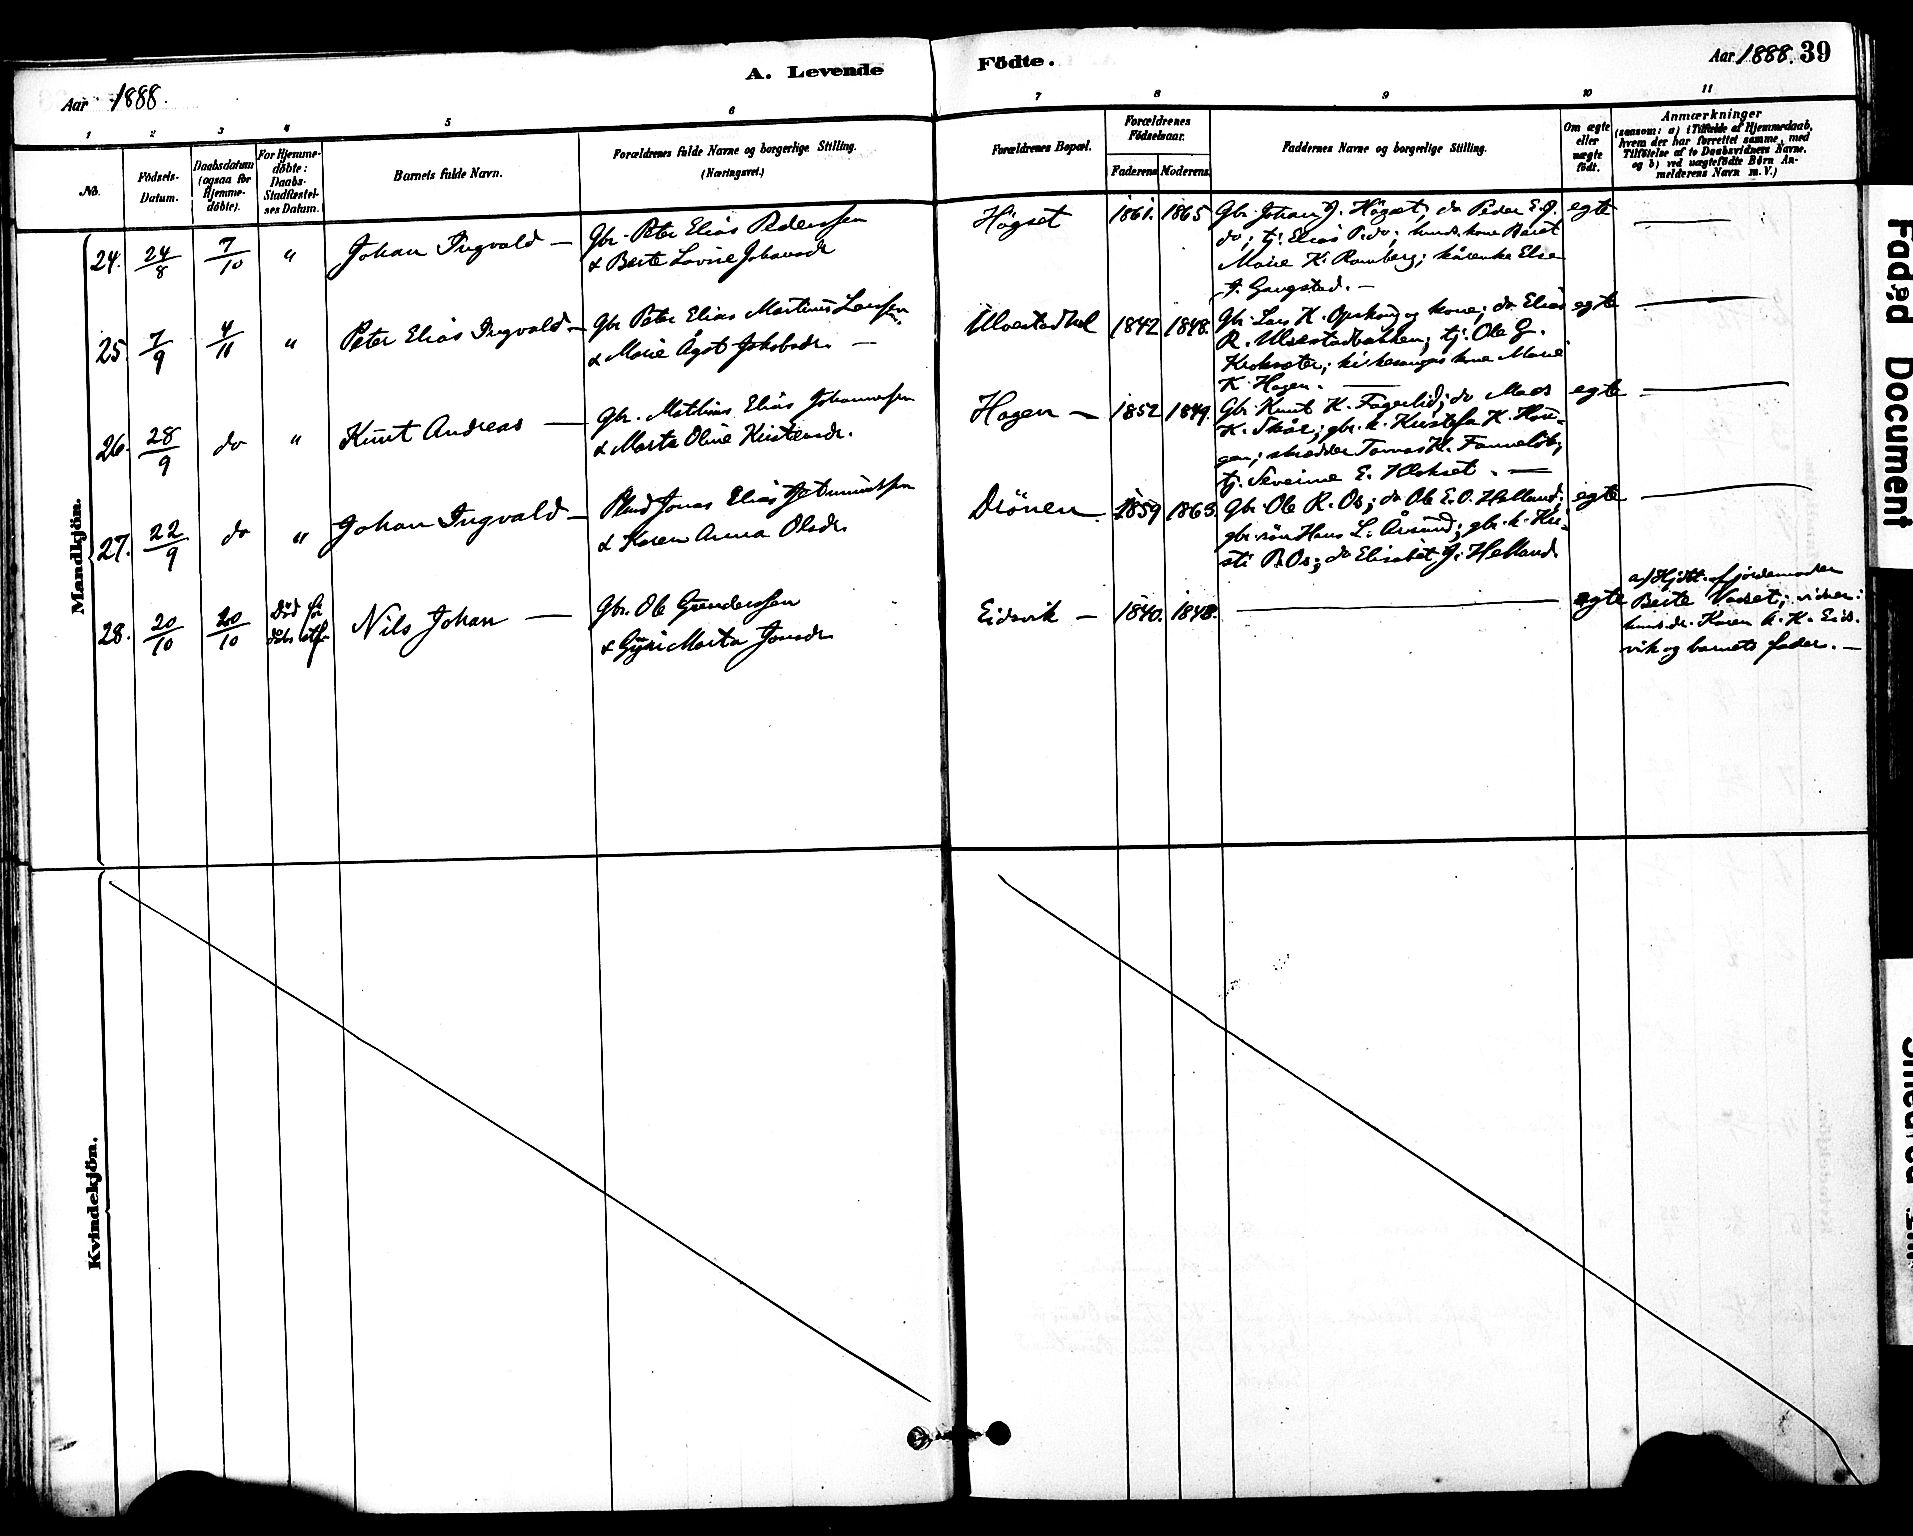 A. Levende Födte.
Aar 1888.
Aar 1888. 39
1 2 3 4 5 6 7 8 9 10 11
No.
Födsels-Datum.
Daabsdatum (ogsaa for Hjemme-döbte).
For Hjemme-döbte: Daabs-Stadfæstel-ses Datum.
Barnets fulde Navn.
Forældrenes fulde Navne og borgerlige Stilling. (Næringsvei.)
Forældrenes Bopæl.
Forældrenes Födselsaar.
Faderens Moderens
Faddernes Navne og borgerlige Stilling.
Om ægte eller uægte födt.
Anmærkninger
(saasom: a) i Tilfælde af Hjemmedaab,
hvem der har forrettet samme, med
Tilföielse af to Daabsvidners Navne.
og b) ved uægtefödte Börn An-
melderens Navn m. V.)
Mandkjön.
24. 24/8 7/10 " Johan Ingvald —
Gbr. Peter Elias Pedersen
& Berte Lovise Johansdr
Högset 1861. 1865
Gbr. Johan J. Högset; do Peder E. J.
do; tj. Elias P. do; kone Beret
Marie K. Ramberg; Else
J. Gangstad. —
egte —
25. 7/9 4/11 " Peter Elias Ingvald —
Gbr. Peter Elias Martinus Larssen
& Marie Ågot Jakobsdr. —
Ulvestadhol 1842 1848.
Gbr. Lars K. Opskog og kone; do Elias
R. Ulvestadbakken; tj. Ole G.
Kroksæter; kone Marie
K. Hagen. —
egte —
26. 28/9 do " Knut Andreas —
Gbr. Mathias Elias Johannessen
& Marta Oline Kristensdr.
Hagen — 1852 1849.
Gbr. Knut K. Fagerlid; do Mads
K. Skår; gbr. k. Kristofa K. Ha-
gen; skrædder Tomas K.
tj. Severine E. —
egte —
27. 22/9 do " Johan Ingvald —
Jonas Elias
& Karen Anna Olsdr
Drönen. 1859 1863.
Gbr. Ole R. Os; do Ole E. O. Helland;
gbr. sön Hans L. Årsund; gbr. k. Kri-
sti B. Os; do Elisabet J. Helland.
egte —
28. 20/10 20/10 Död
Nils Johan —
Gbr. Ole Gundersen
& Gjuri Marta Jonsdr
Eidsvik — 1840. 1848. —
egte
a) Hjdbt. af jordemoder
Berte vidner:
Karen K. Eids-
vik og barnets fader. —
Kvindekjön.
Faded Document